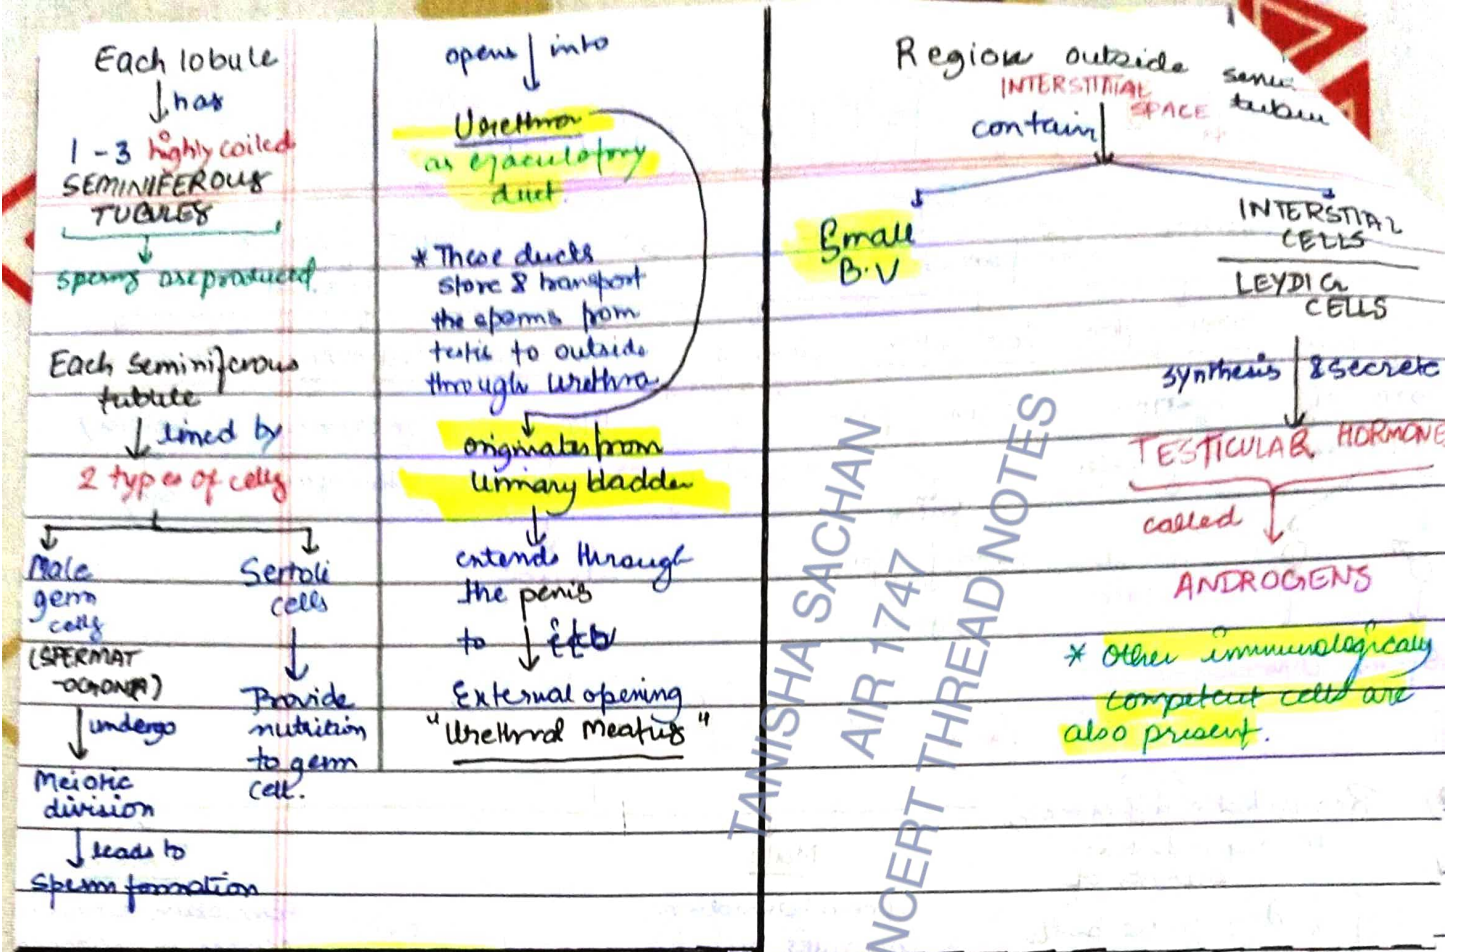 Each lobule
has
1 - 3 highly coiled
SEMINIFEROUS
TUBULES
sperms are produced
Each Seminiferous
tubule
lined by
2 types of cells
Male
germ
cells
(SPERMAT
-OGONIA)
undergo
Meiotic
division
leads to
Sperm formation
Sertoli
cells
Provide
nutrition
to germ
cell.
opens into
Urethra
as ejaculatory
duct.
* These ducts
store & transport
the sperms from
testis to outside
through urethra
originates from
Urinary bladder
extends through
the penis
to
External opening
"Urethral Meatus"
Region outside
INTERSTITIAL
SPACE
contain
Small
B.V
INTERSTIAL
CELLS
LEYDIG
CELLS
synthesis & secrete
TESTICULAR HORMONE
called
ANDROGENS
* Other immunologically
competent cells are
also present.
TANISHA SACHAN
AIR 1747
NCERT THREAD NOTES